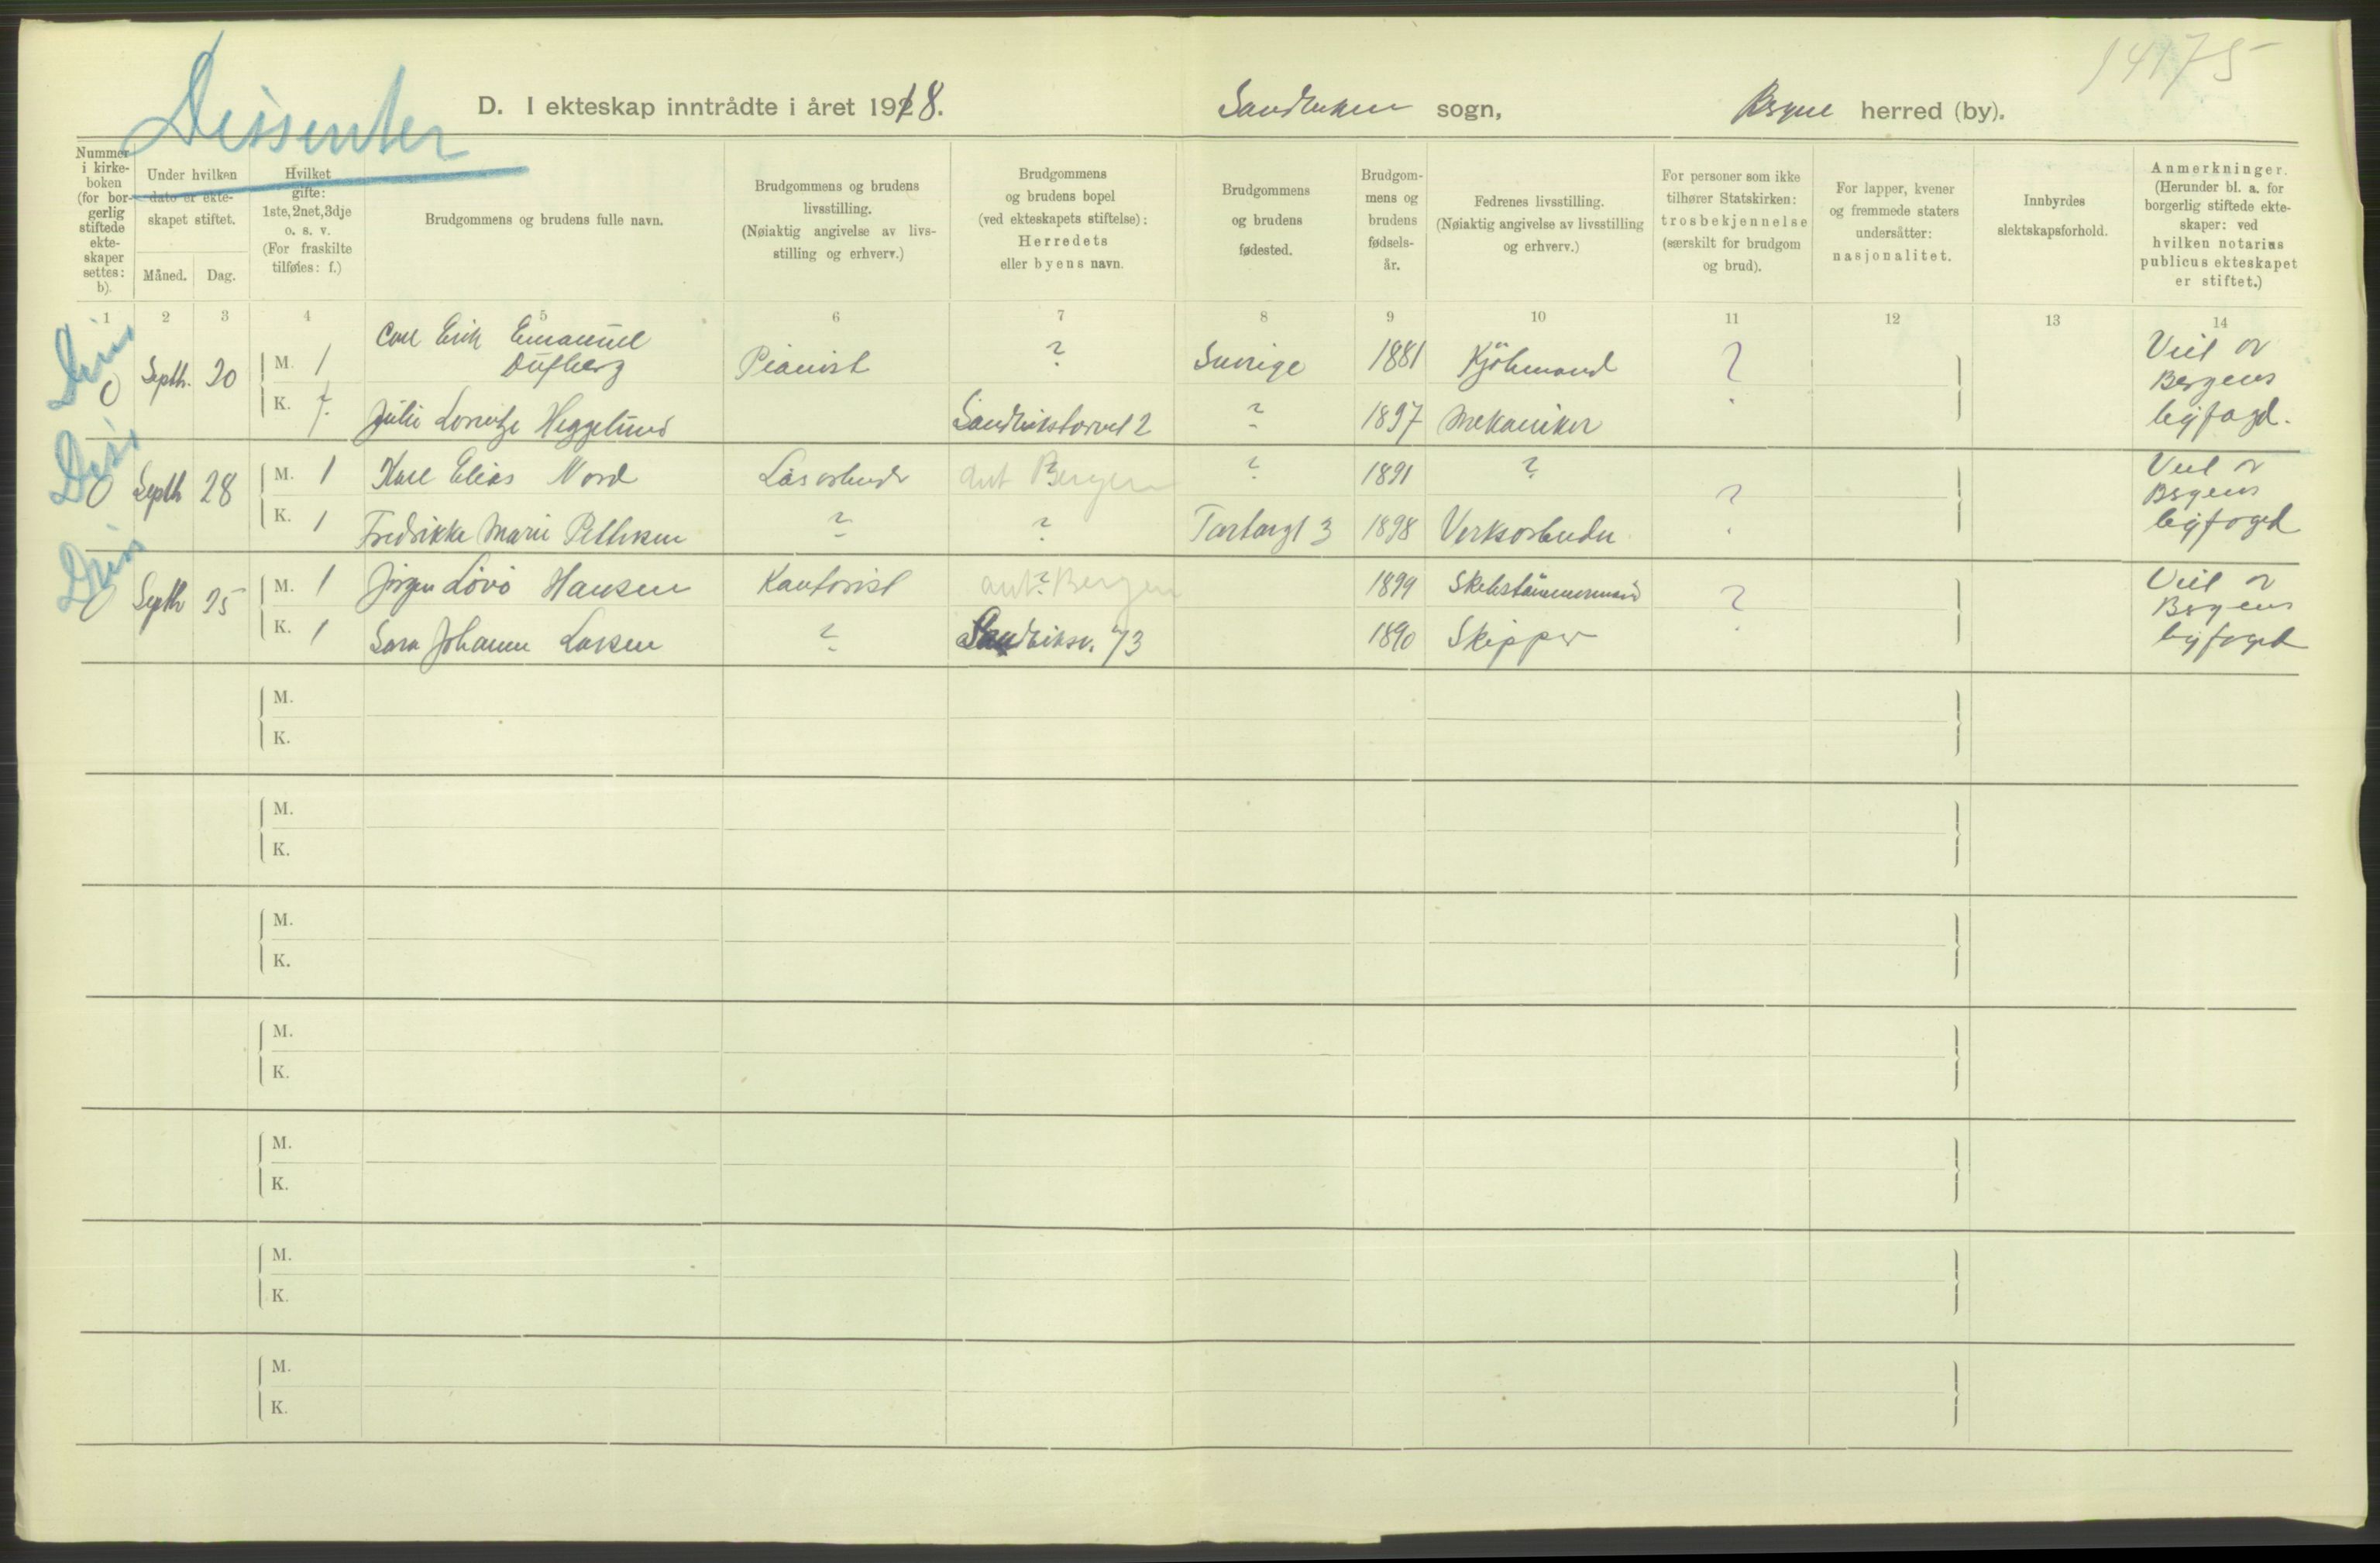 14175
Dissenter
D. I ekteskap inntrådte i året 1918. Sandviken sogn, Bergen herred (by).
Nummer i kirke-boken (for bor-gerlig stiftede ekte-skaper settes: b).
Under hvilken dato er ekte-skapet stiftet.
Måned. Dag.
Hvilket gifte: 1ste, 2net, 3dje o. s. v. (For fraskilte tilføies: f.)
Brudgommens og brudens fulle navn.
Brudgommens og brudens livsstilling. (Nøiaktig angivelse av livs-stilling og erhverv.)
Brudgommens og brudens bopel (ved ekteskapets stiftelse): Herredets eller byens navn.
Brudgommens og brudens fødested.
Brudgom-mens og brudens fødsels-år.
Fedrenes livsstilling. (Nøiaktig angivelse av livsstilling og erhverv.)
For personer som ikke tilhører Statskirken: trosbekjennelse (særskilt for brudgom og brud).
For lapper, kvener og fremmede staters undersåtter: nasjonalitet.
Innbyrdes slektskapsforhold.
Anmerkninger. (Herunder bl. a. for borgerlig stiftede ekte-skaper: ved hvilken notarius publicus ekteskapet er stiftet.)
1 2 3 4 5 6 7 8 9 10 11 12 13 14
Diss
0 Septb. 20 M. 1 Carl Erik Emanuel Dufberg Pianist ? Sverige 1881 Kjöbmand ? Viet av Bergens byfogd.
K. Julie Lorentze Heggelund Sandvikstorvet 2 ? 1897 Mekaniker
Diss
0 Septb 28 M. 1 Karl Elias Nord Løsarbeider ant Bergen ? 1891 ? ? Viet av Bergens byfoged
K. 1 Fredrikke Marie Pettersen ? ? 3 1898 Verksarbeider
Diss
0 Septb 25 M. 1 Jörgen Lövö Hansen Kontorist ant? Bergen 1899 Skibstömmermand ? Viet av Bergens byfoged
K. 1 Sara Johanne Larsen ? Sandviksv. 73 1890 Skipper
M.
K.
M.
K.
M.
K.
M.
K.
M.
K.
M.
K.
M.
K.